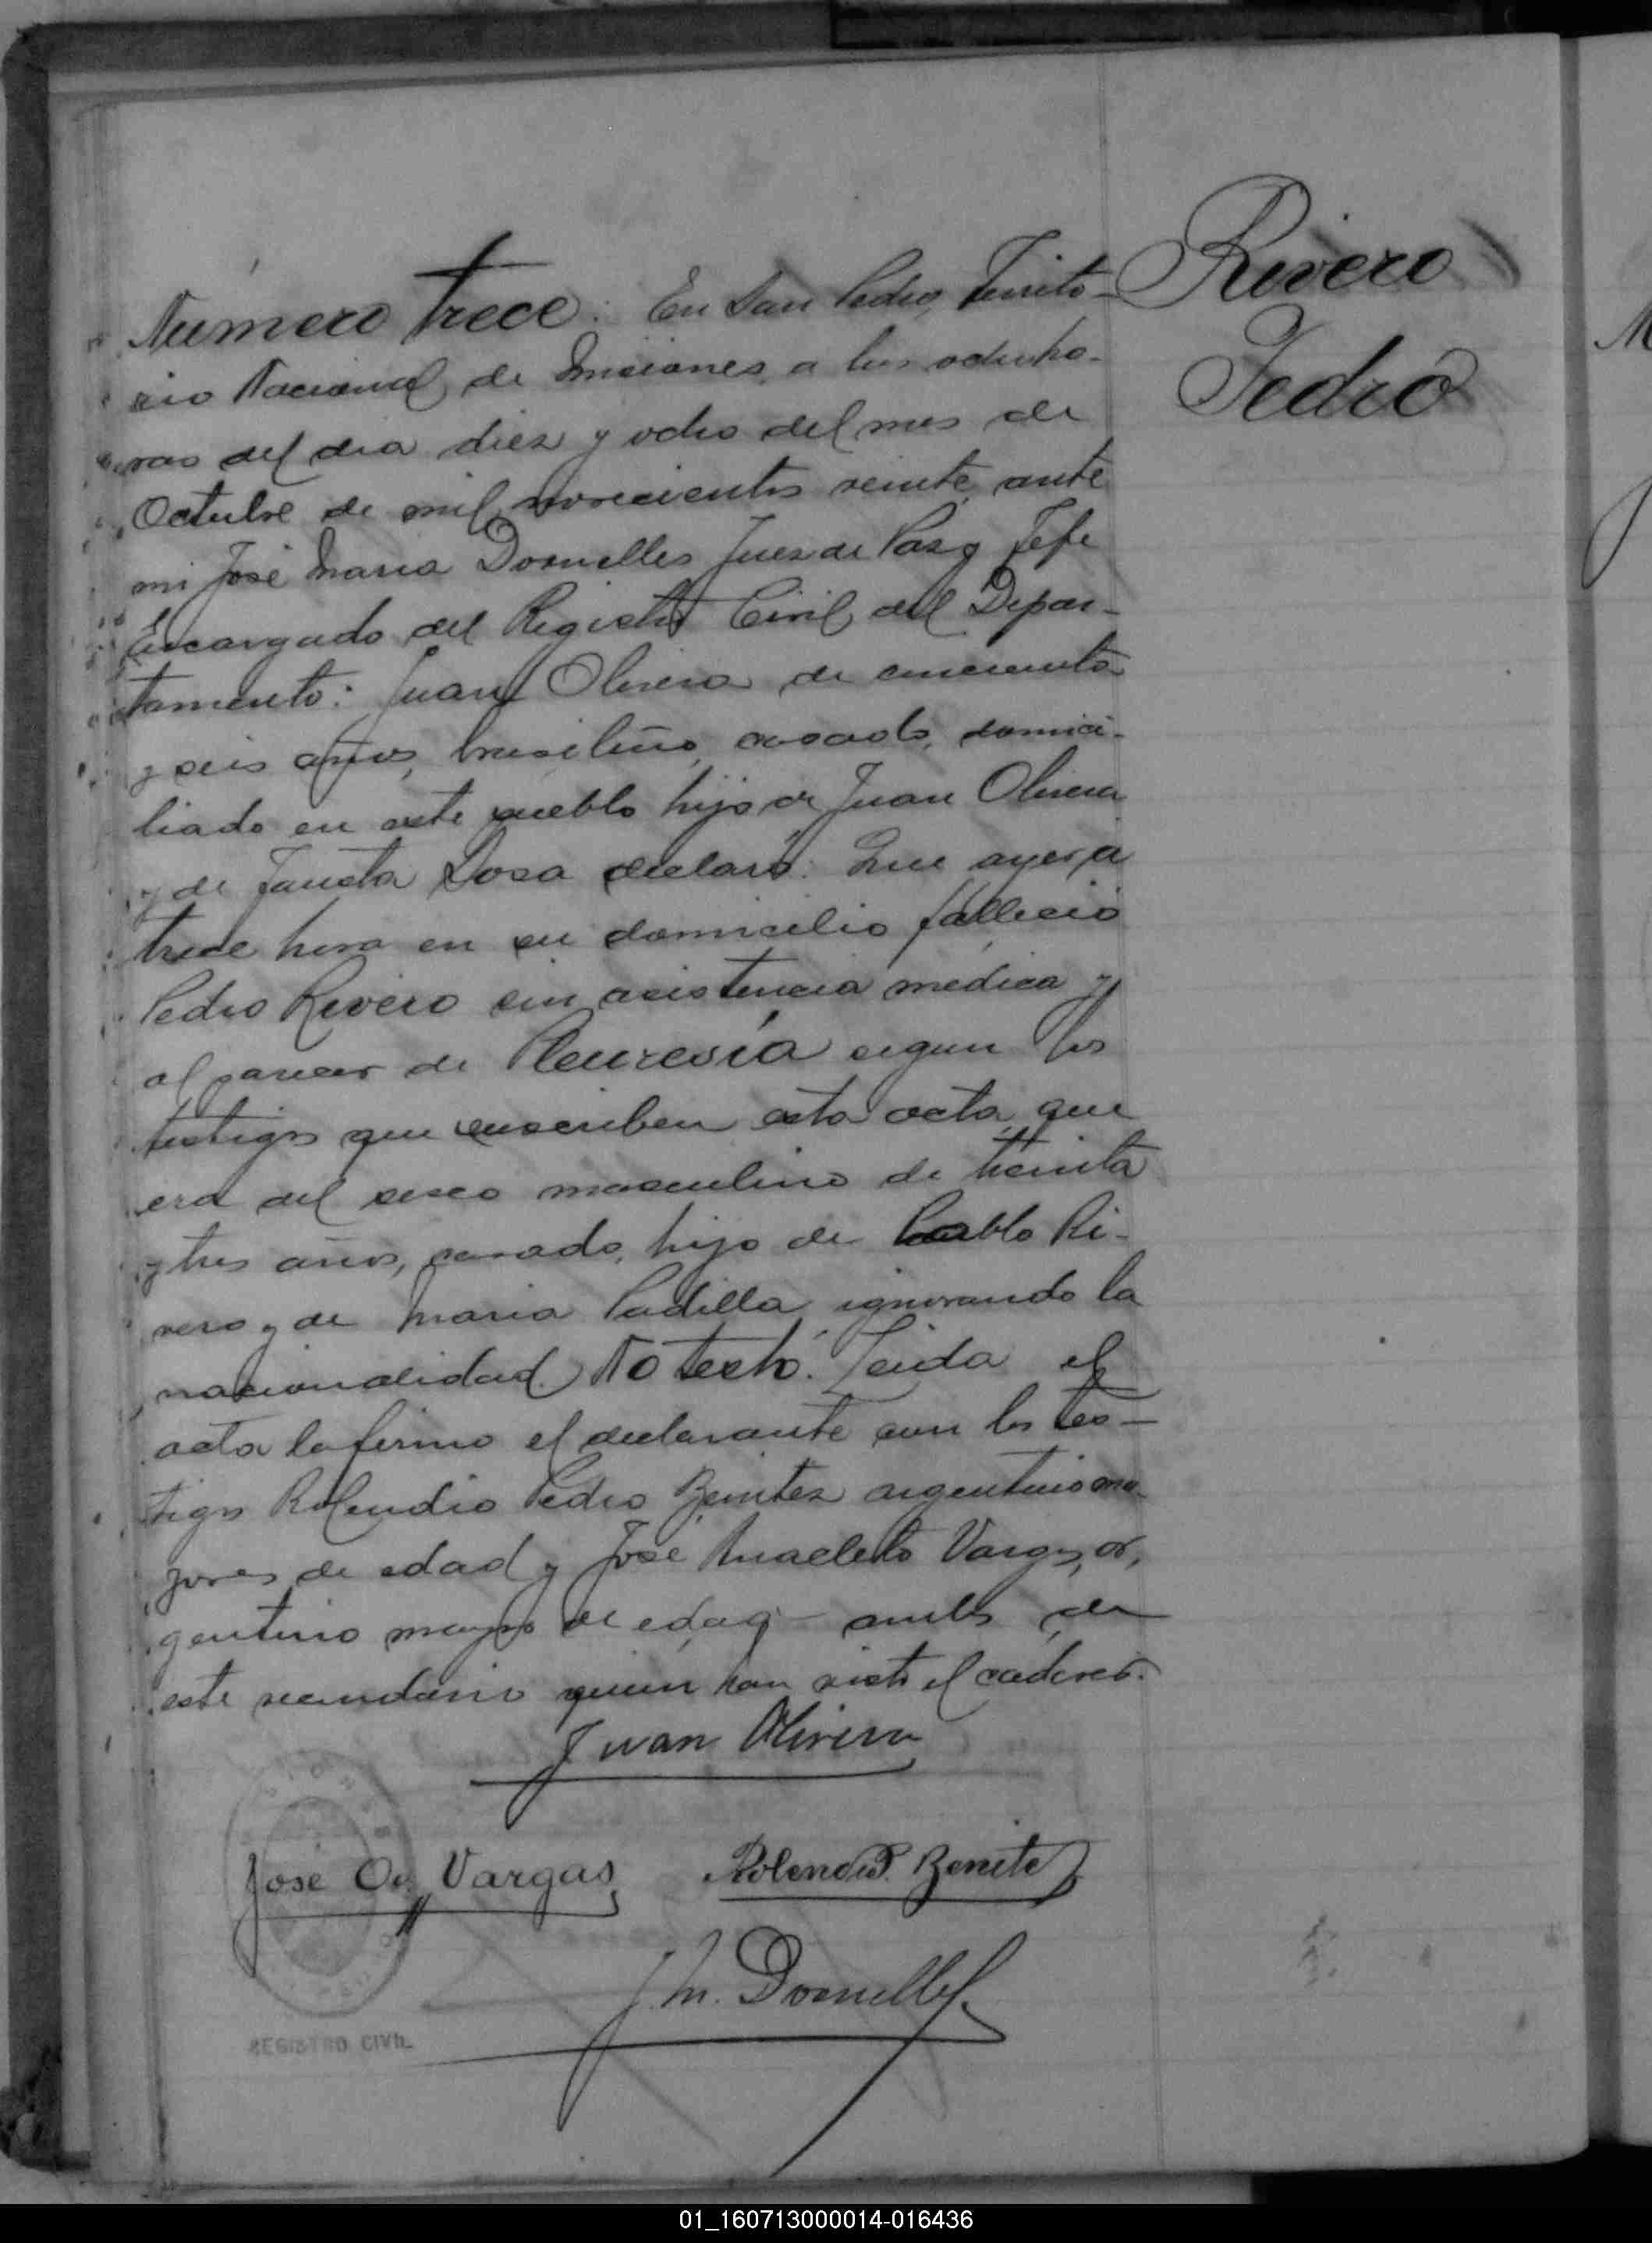 Rivero
Pedro
Número trece. En San Pedro, Territo-
rio Nacional de Misiones a las ocho ho-
ras del dia diez y ocho del mes de
Octubre de mil novecientos veinte, ante
mi José Maria Dornelles Juez de Paz y Jefe
Encargado del Registro Civil del Depar-
tamento: Juan Olivera de cincuenta
y seis años, brasileño, casado, domici-
liado en este pueblo hijo de Juan Olivera
y de Fausta Sosa declaró: Que ayer a
trece hora en su domicilio fallecio
Pedro Rivero sin asistencia medica y
al parecer de Pleuresía segun los
testigos que suscriben esta acta, que
era del sexo masculino de treinta
y tres años, casado, hijo de Pablo Ri-
vero y de Maria Padilla ignorando la
nacionalidad. No testó. Leida el
acta la firmo el declarante con los tes-
tigos Rolendio Pedro Benitez argentino ma-
yores de edad y José Anacleto Vargas, ar,
gentino mayor de edad ambos de
este vecindario quien han visto el cadaver.
Juan Olivera
José A. Vargas
Rolendio P. Benitez
J. M. Dornelles
REGISTRO CIVIL
01_160713000014-016436